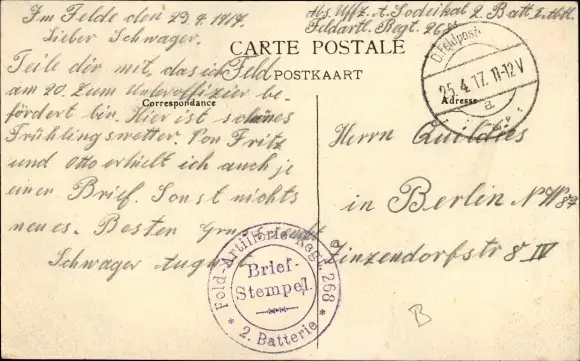 Im Felde den 29.4.1917.
Lieber Schwager.
Teile dir mit, das ich
am 20. zum Unteroffizier be-
fördert bin. Hier ist schönes
Frühlingswetter. Von Fritz
und Otto erhielt ich auch je
einen Brief. Sonst nichts
neues. Besten Gruß
Schwager August
Abs. Uffz. A. 2. Batt.
Feldartl. Regt. 268
CARTE POSTALE
Feld
POSTKAART
Correspondance
Adresse
D. Feldpost
25.4.17. 11-12V
a
Herrn
in Berlin NW 87
Zinzendorfstr 8 IV
Feld-Artillerie-Regt. 268
Brief-
Stempel.
* 2. Batterie *
B